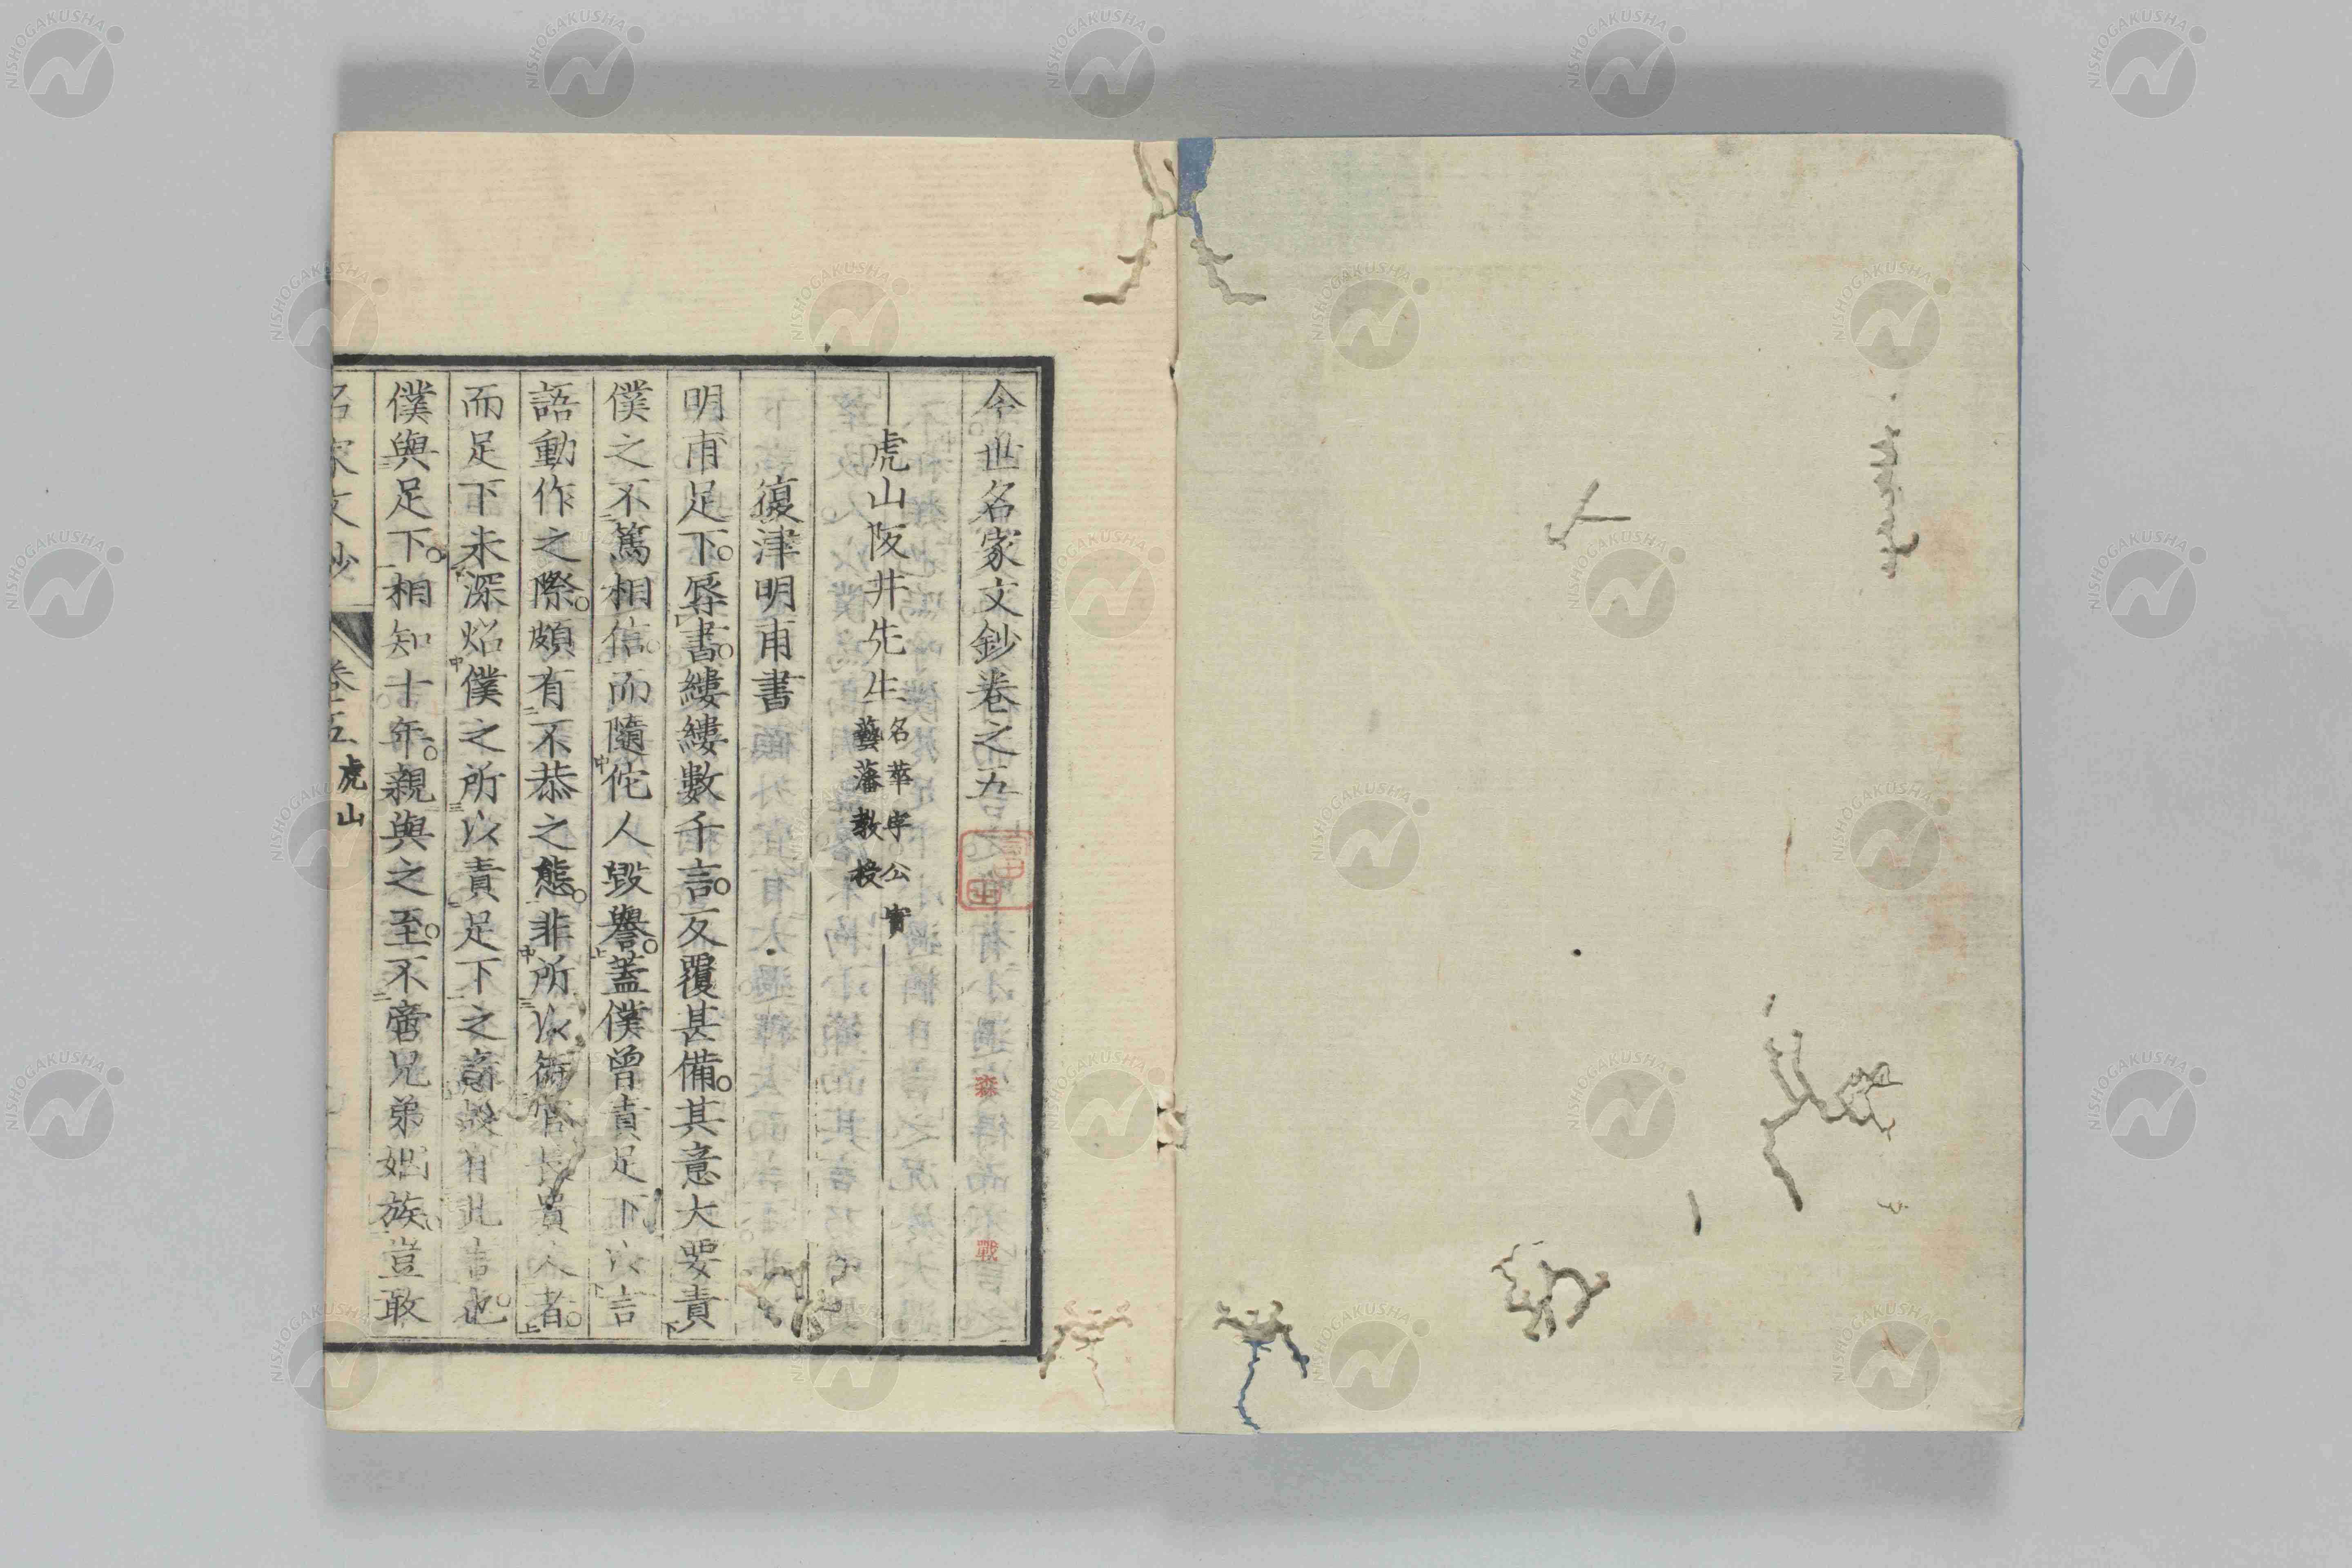 今世名家文鈔卷之五
虎山阪井先生 名華字公實
藝藩教授
復津明甫書
明甫足下辱書縷縷數千言反覆甚備其意大要責
僕之不篤相信而隨佗人毀譽蓋僕曾責足下以言
語動作之際頗有不恭之態非所以御官長貴人者
而足下未深炤僕之所以責足下之意故有此言也
僕與足下相知十年親與之至不啻兄弟姻族豈敢
名家文鈔 卷五 虎山
森
戰
NISHOGAKUSHA